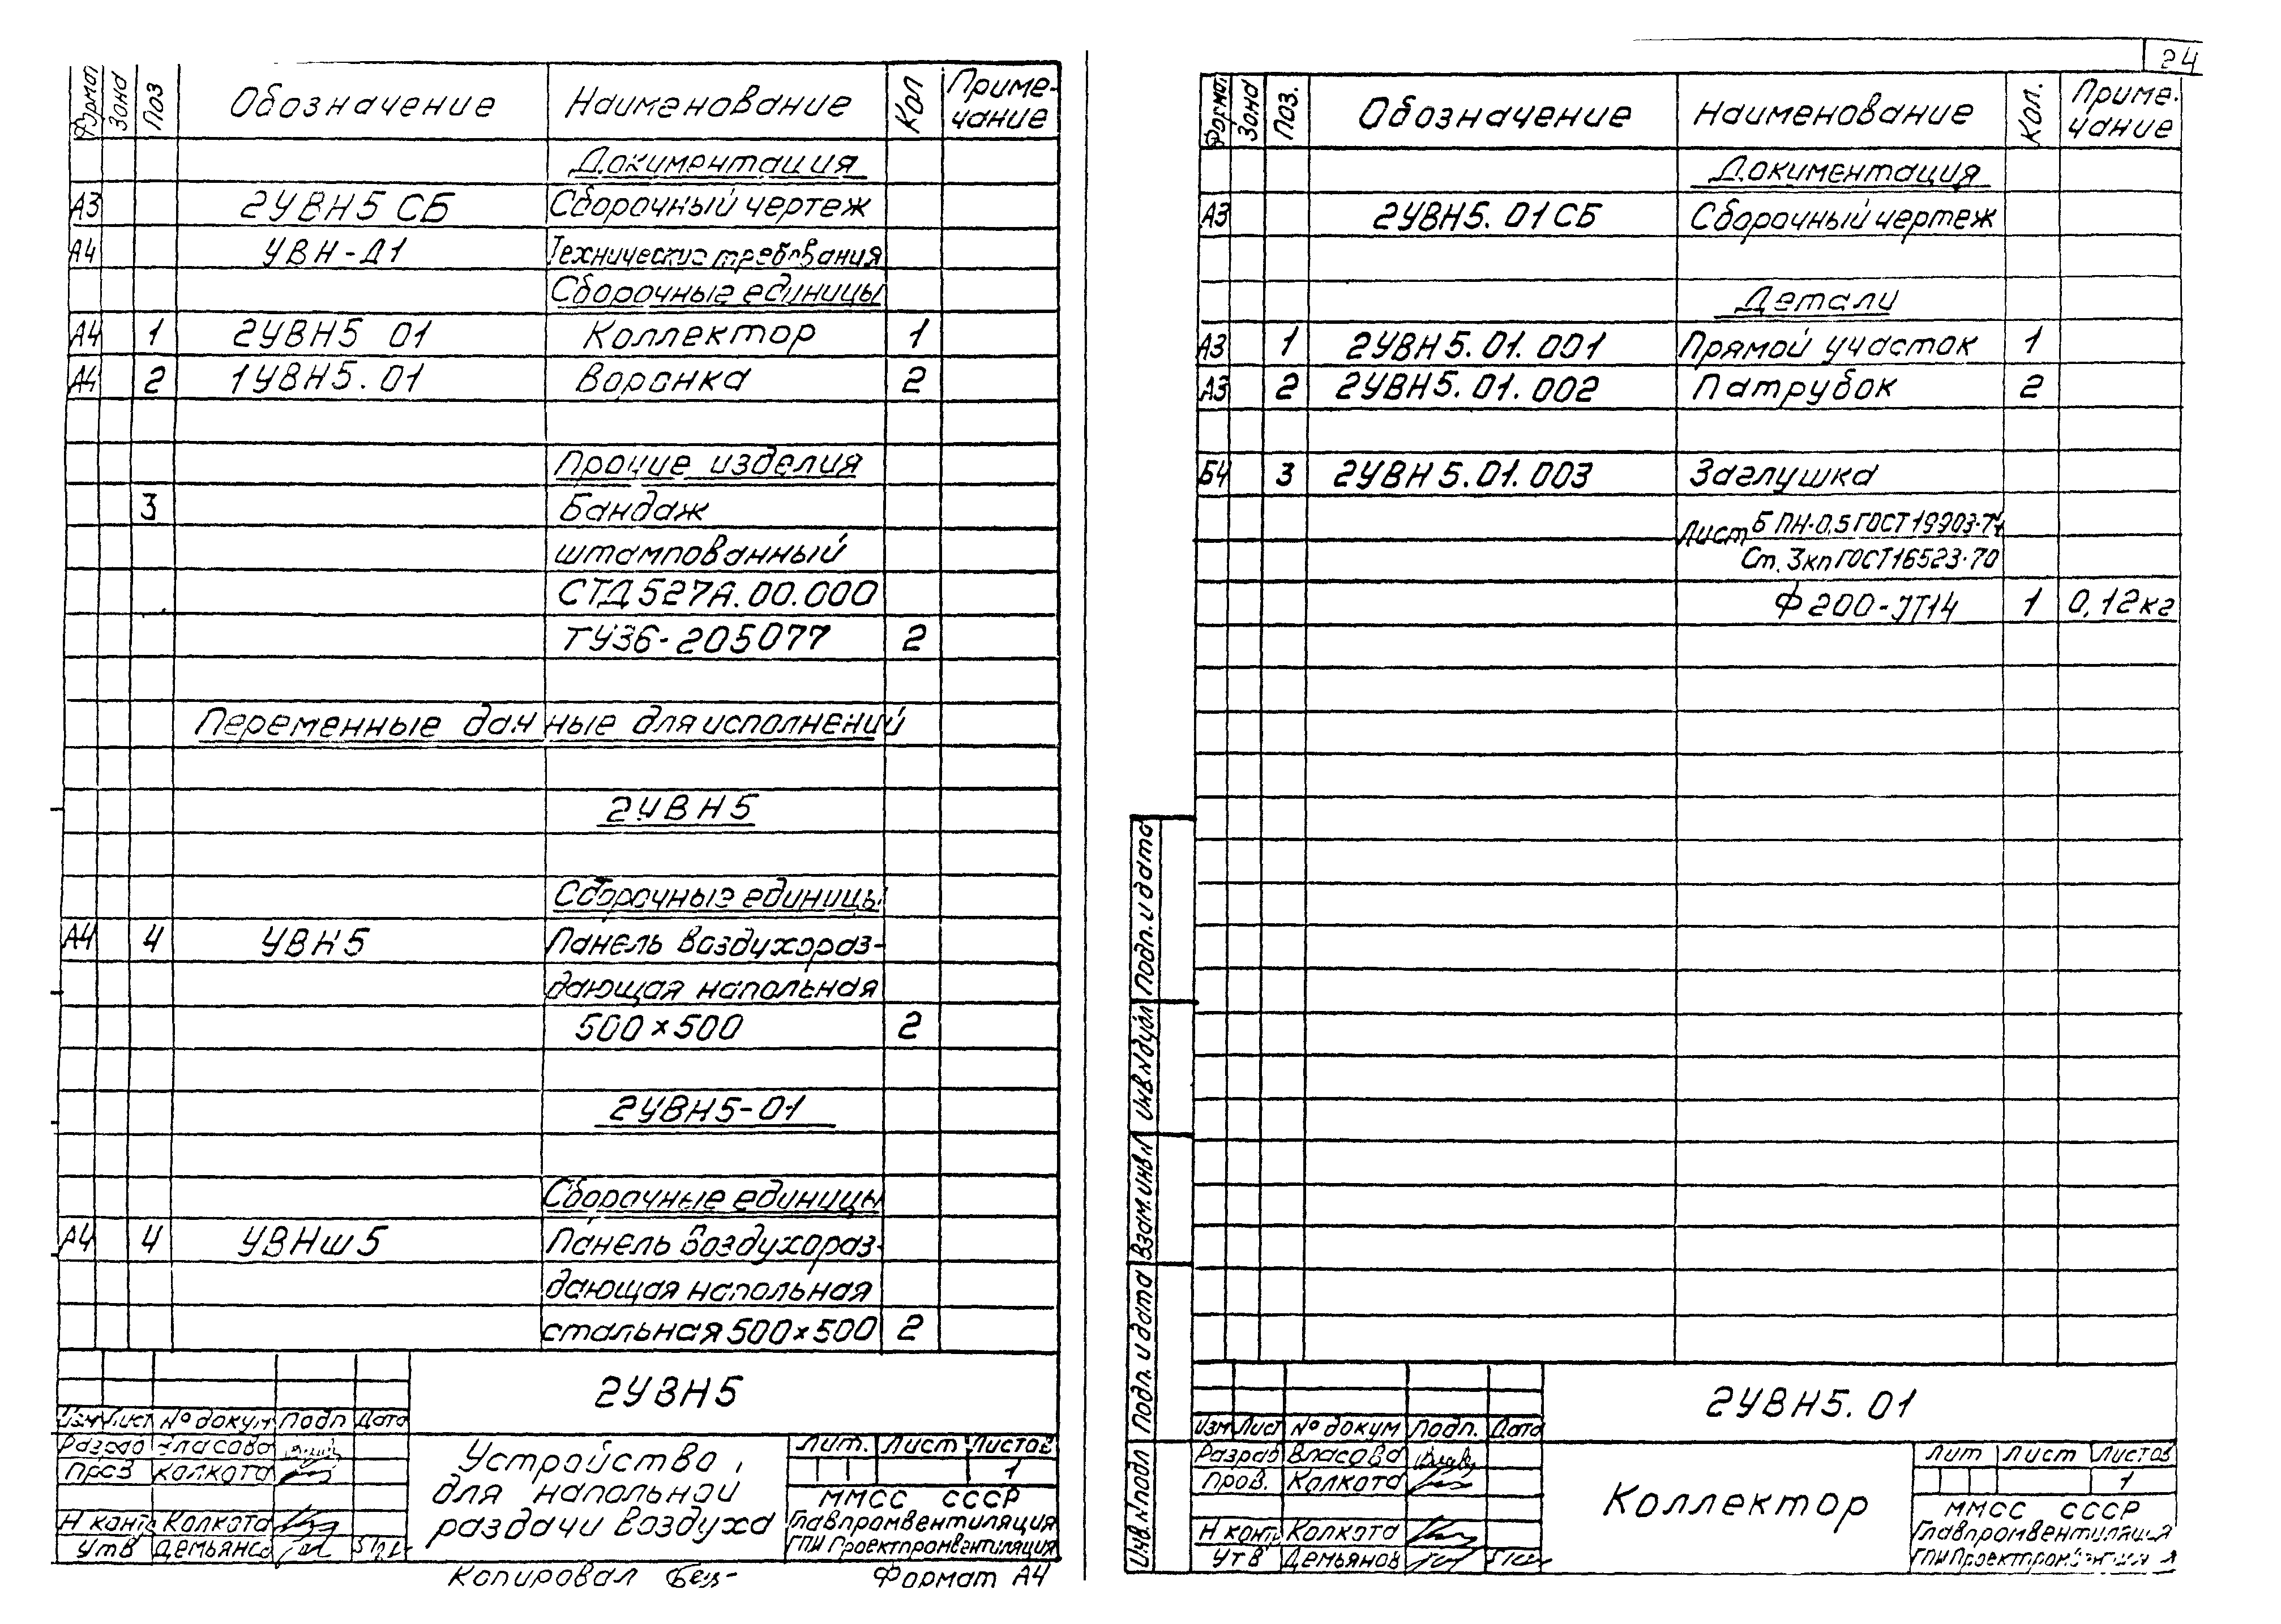 Формат Зона Поз Обозначение Наименование Кол Приме-
чание
Документация
А3 2УВН5 СБ Сборочный чертеж
А4 УВН-Д1 Технические требования
Сборочные единицы
А4 1 2УВН5 01 Коллектор 1
А4 2 1УВН5.01 Воронка 2
Прочие изделия
3 Бандаж
штампованный
СТД 527А.00.000
ТУ36-205077 2
Переменные данные для исполнений
2УВН5
Сборочные единицы
А4 4 УВН5 Панель воздухораз-
дающая напольная
500×500 2
2УВН5-01
Сборочные единицы
А4 4 УВНш5 Панель воздухораз-
дающая напольная
стальная 500×500 2
2УВН5
Изм Лист № докум Подп Дата
Разраб Власова
Пров Колкота
Н конт Колкота
Утв Демьянов
Устройство
для напольной
раздачи воздуха
Лит. Лист Листов
1
ММСС СССР
Главпромвентиляция
ГПИ Проектпромвентиляция
Копировал Формат А4
24
Формат Зона Поз. Обозначение Наименование Кол. Приме-
чание
Документация
А3 2УВН5.01 СБ Сборочный чертеж
Детали
А3 1 2УВН5.01.001 Прямой участок 1
А3 2 2УВН5.01.002 Патрубок 2
БЧ 3 2УВН5.01.003 Заглушка
Лист Б ПН-0,5 ГОСТ 19903-74
Ст. 3кп ГОСТ 16523-70
Ф 200-JT14 1 0,12кг
Подп. и дата
Инв.№дубл
Взам.инв.№
Подп. и дата
Инв.№подл
2УВН5.01
Изм Лист № докум Подп. Дата
Разраб Власова
Пров. Колкота
Н конт Колкота
Утв Демьянов
Коллектор
Лит Лист Листов
1
ММСС СССР
Главпромвентиляция
ГПИ Проектпромвентиляция